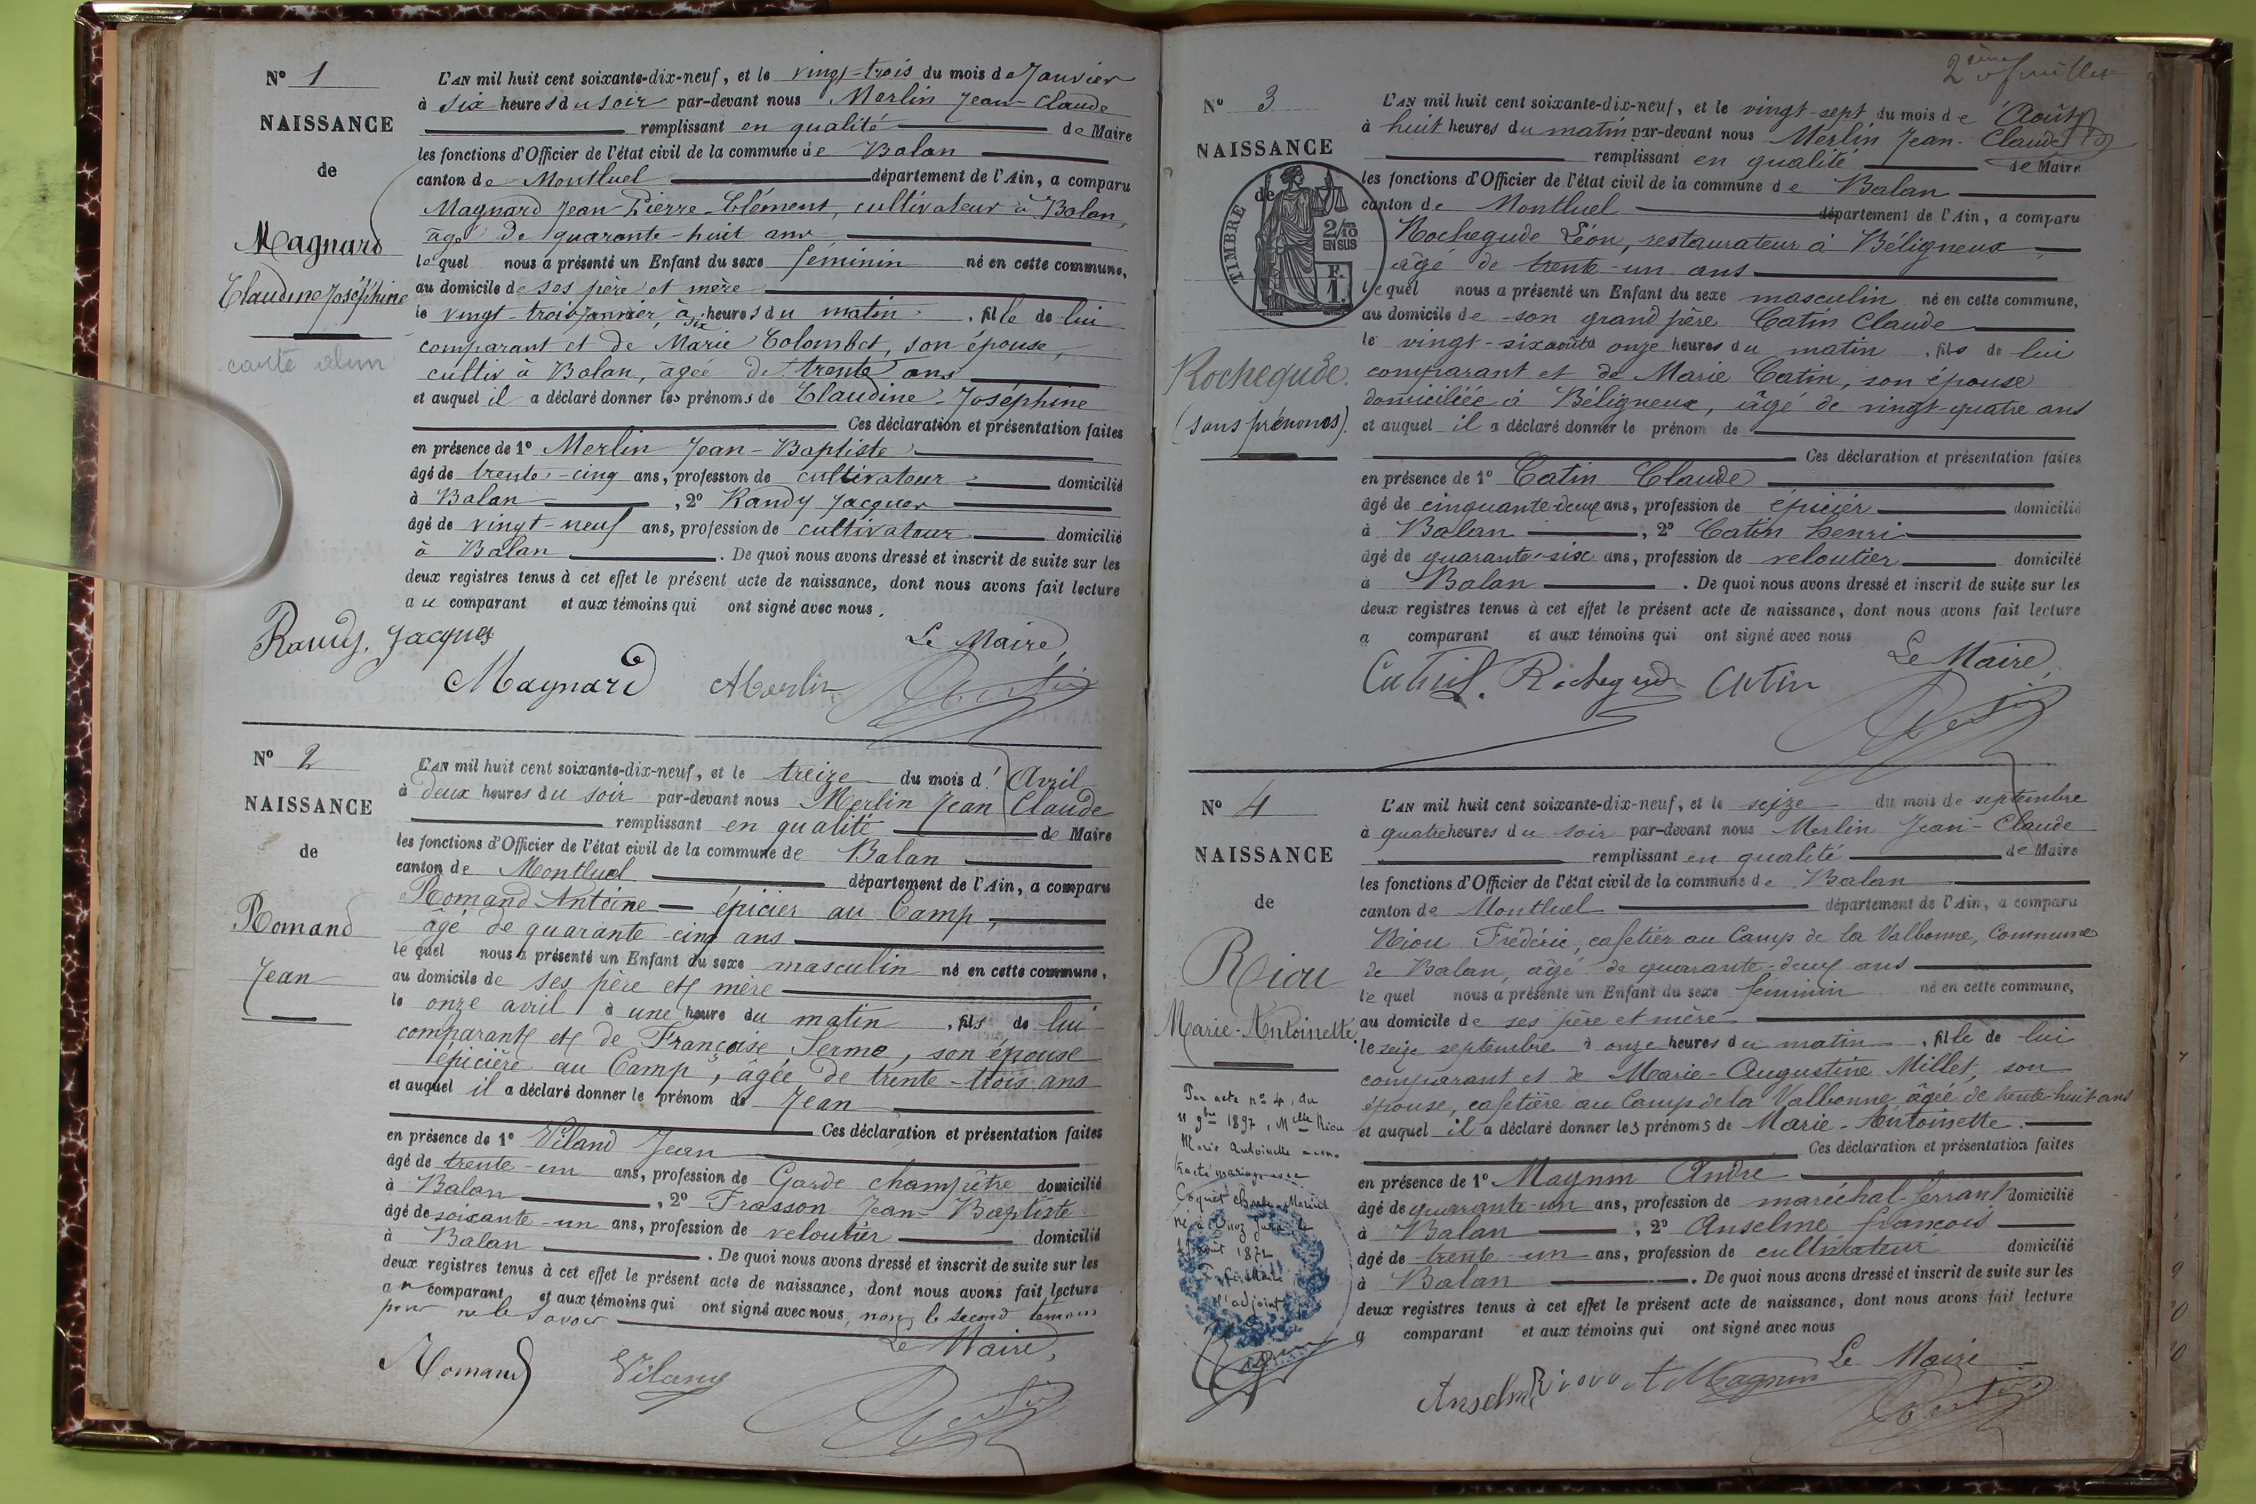 N° 1
L'AN mil huit cent soixante-dix-neuf, et le vingt-trois du mois de Janvier
à six heures du soir par-devant nous Merlin Jean-Claude
NAISSANCE
remplissant en qualité de Maire
les fonctions d'Officier de l'état civil de la commune de Balan
de
canton de Montluel département de l'Ain, a comparu
Magnard Jean Pierre-Clément, cultivateur à Balan,
Magnard
âgé de quarante-huit ans
lequel nous a présenté un Enfant du sexe féminin né en cette commune,
Claudine Joséphine
au domicile de ses père et mère
le vingt-trois janvier, à six heures du matin, fille de lui
comparant et de Marie Colombet, son épouse,
carte
cultiv à Balan, âgée de trente ans
et auquel il a déclaré donner les prénoms de Claudine-Joséphine
Ces déclaration et présentation faites
en présence de 1° Merlin Jean-Baptiste
âgé de trente-cinq ans, profession de cultivateur domicilié
à Balan, 2° Randy Jacques
âgé de vingt-neuf ans, profession de cultivateur domicilié
à Balan. De quoi nous avons dressé et inscrit de suite sur les
deux registres tenus à cet effet le présent acte de naissance, dont nous avons fait lecture
au comparant et aux témoins qui ont signé avec nous.
Randy Jacques
Le Maire,
Magnard Merlin
N° 2
L'AN mil huit cent soixante-dix-neuf, et le treize du mois d'Avril
à deux heures du soir par-devant nous Merlin Jean Claude
NAISSANCE
remplissant en qualité de Maire
les fonctions d'Officier de l'état civil de la commune de Balan
de
canton de Montluel département de l'Ain, a comparu
Romand Antoine épicier au Camp,
Romand
âgé de quarante-cinq ans
lequel nous a présenté un Enfant du sexe masculin né en cette commune,
Jean
au domicile de ses père et mère
le onze avril à une heure du matin, fils de lui
comparant et de Françoise Serme, son épouse
épicière au Camp, âgée de trente-trois ans
et auquel il a déclaré donner le prénom de Jean
Ces déclaration et présentation faites
en présence de 1° Viland Jean
âgé de trente-un ans, profession de Garde champêtre domicilié
à Balan, 2° Frasson Jean-Baptiste
âgé de soixante-un ans, profession de veloutier domicilié
à Balan. De quoi nous avons dressé et inscrit de suite sur les
deux registres tenus à cet effet le présent acte de naissance, dont nous avons fait lecture
au comparant et aux témoins qui ont signé avec nous, non le second témoin
pour ne le savoir
Le Maire,
Romand Viland
2ème feuillet
N° 3
L'AN mil huit cent soixante-dix-neuf, et le vingt-sept du mois de Août
à huit heures du matin par-devant nous Merlin Jean-Claude
NAISSANCE
remplissant en qualité de Maire
les fonctions d'Officier de l'état civil de la commune de Balan
de
canton de Montluel département de l'Ain, a comparu
TIMBRE
2/10
EN SUS
F.
1.
Rochegude Léon, restaurateur à Béligneux,
âgé de trente-un ans
lequel nous a présenté un Enfant du sexe masculin né en cette commune,
au domicile de son grand père Catin Claude
le vingt-six août à onze heures du matin, fils de lui
Rochegude.
comparant et de Marie Catin, son épouse
domiciliée à Béligneux, âgé de vingt-quatre ans
(sans prénoms).
et auquel il a déclaré donner le prénom de
Ces déclaration et présentation faites
en présence de 1° Catin Claude
âgé de cinquante-deux ans, profession de épicier domicilié
à Balan, 2° Catin Henri
âgé de quarante-six ans, profession de veloutier domicilié
à Balan. De quoi nous avons dressé et inscrit de suite sur les
deux registres tenus à cet effet le présent acte de naissance, dont nous avons fait lecture
a comparant et aux témoins qui ont signé avec nous
Le Maire,
Rochegude Catin
N° 4
L'AN mil huit cent soixante-dix-neuf, et le seize du mois de septembre
à quatre heures du soir par-devant nous Merlin Jean-Claude
NAISSANCE
remplissant en qualité de Maire
les fonctions d'Officier de l'état civil de la commune de Balan
de
canton de Montluel département de l'Ain, a comparu
Riou Frédéric, cafetier au Camp de la Valbonne, Commune
Riou
de Balan, âgé de quarante-deux ans
lequel nous a présenté un Enfant du sexe féminin né en cette commune,
Marie-Antoinette
au domicile de ses père et mère
le seize septembre à onze heures du matin, fille de lui
comparant et de Marie-Augustine Millet, son
épouse, cafetière au Camp de la Valbonne, âgée de trente-huit ans
et auquel il a déclaré donner les prénoms de Marie-Antoinette.
Ces déclaration et présentation faites
en présence de 1° Magnin André
âgé de quarante-un ans, profession de maréchal-ferrant domicilié
à Balan, 2° Anselme françois
âgé de trente-un ans, profession de cultivateur domicilié
à Balan. De quoi nous avons dressé et inscrit de suite sur les
deux registres tenus à cet effet le présent acte de naissance, dont nous avons fait lecture
a comparant et aux témoins qui ont signé avec nous
Par acte n° 4, du
9bre 1897, Melle Riou
Marie Antoinette a con-
tracté mariage avec
Coquet
né à
août 1872
l'adjoint
Le Maire
Anselme Riou Magnin